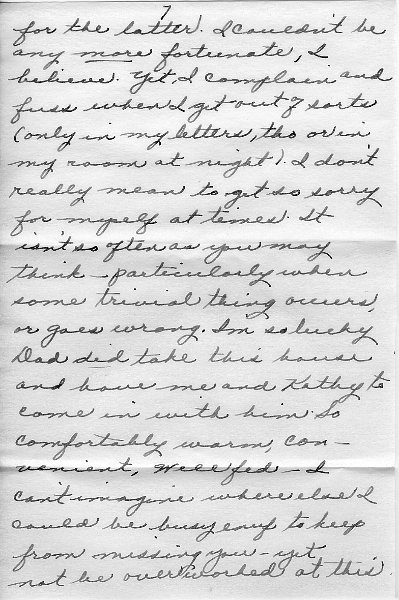 7
for the latter. I couldn't be
any more fortunate, I
believe. Yet, I complain and
fuss when I get out of sorts
(only in my letters, tho or in
my room at night). I don't
really mean to get so sorry
for myself at times. It
isn't so often as you may
think - particularly when
some trivial thing occurs,
or goes wrong. I'm so lucky
Dad did take this house
and have me and Kathy to
come in with him. So
comfortably warm, con-
venient, well fed - I
can't imagine where else I
could be busy enuf to keep
from missing you - yet
not be overworked at this